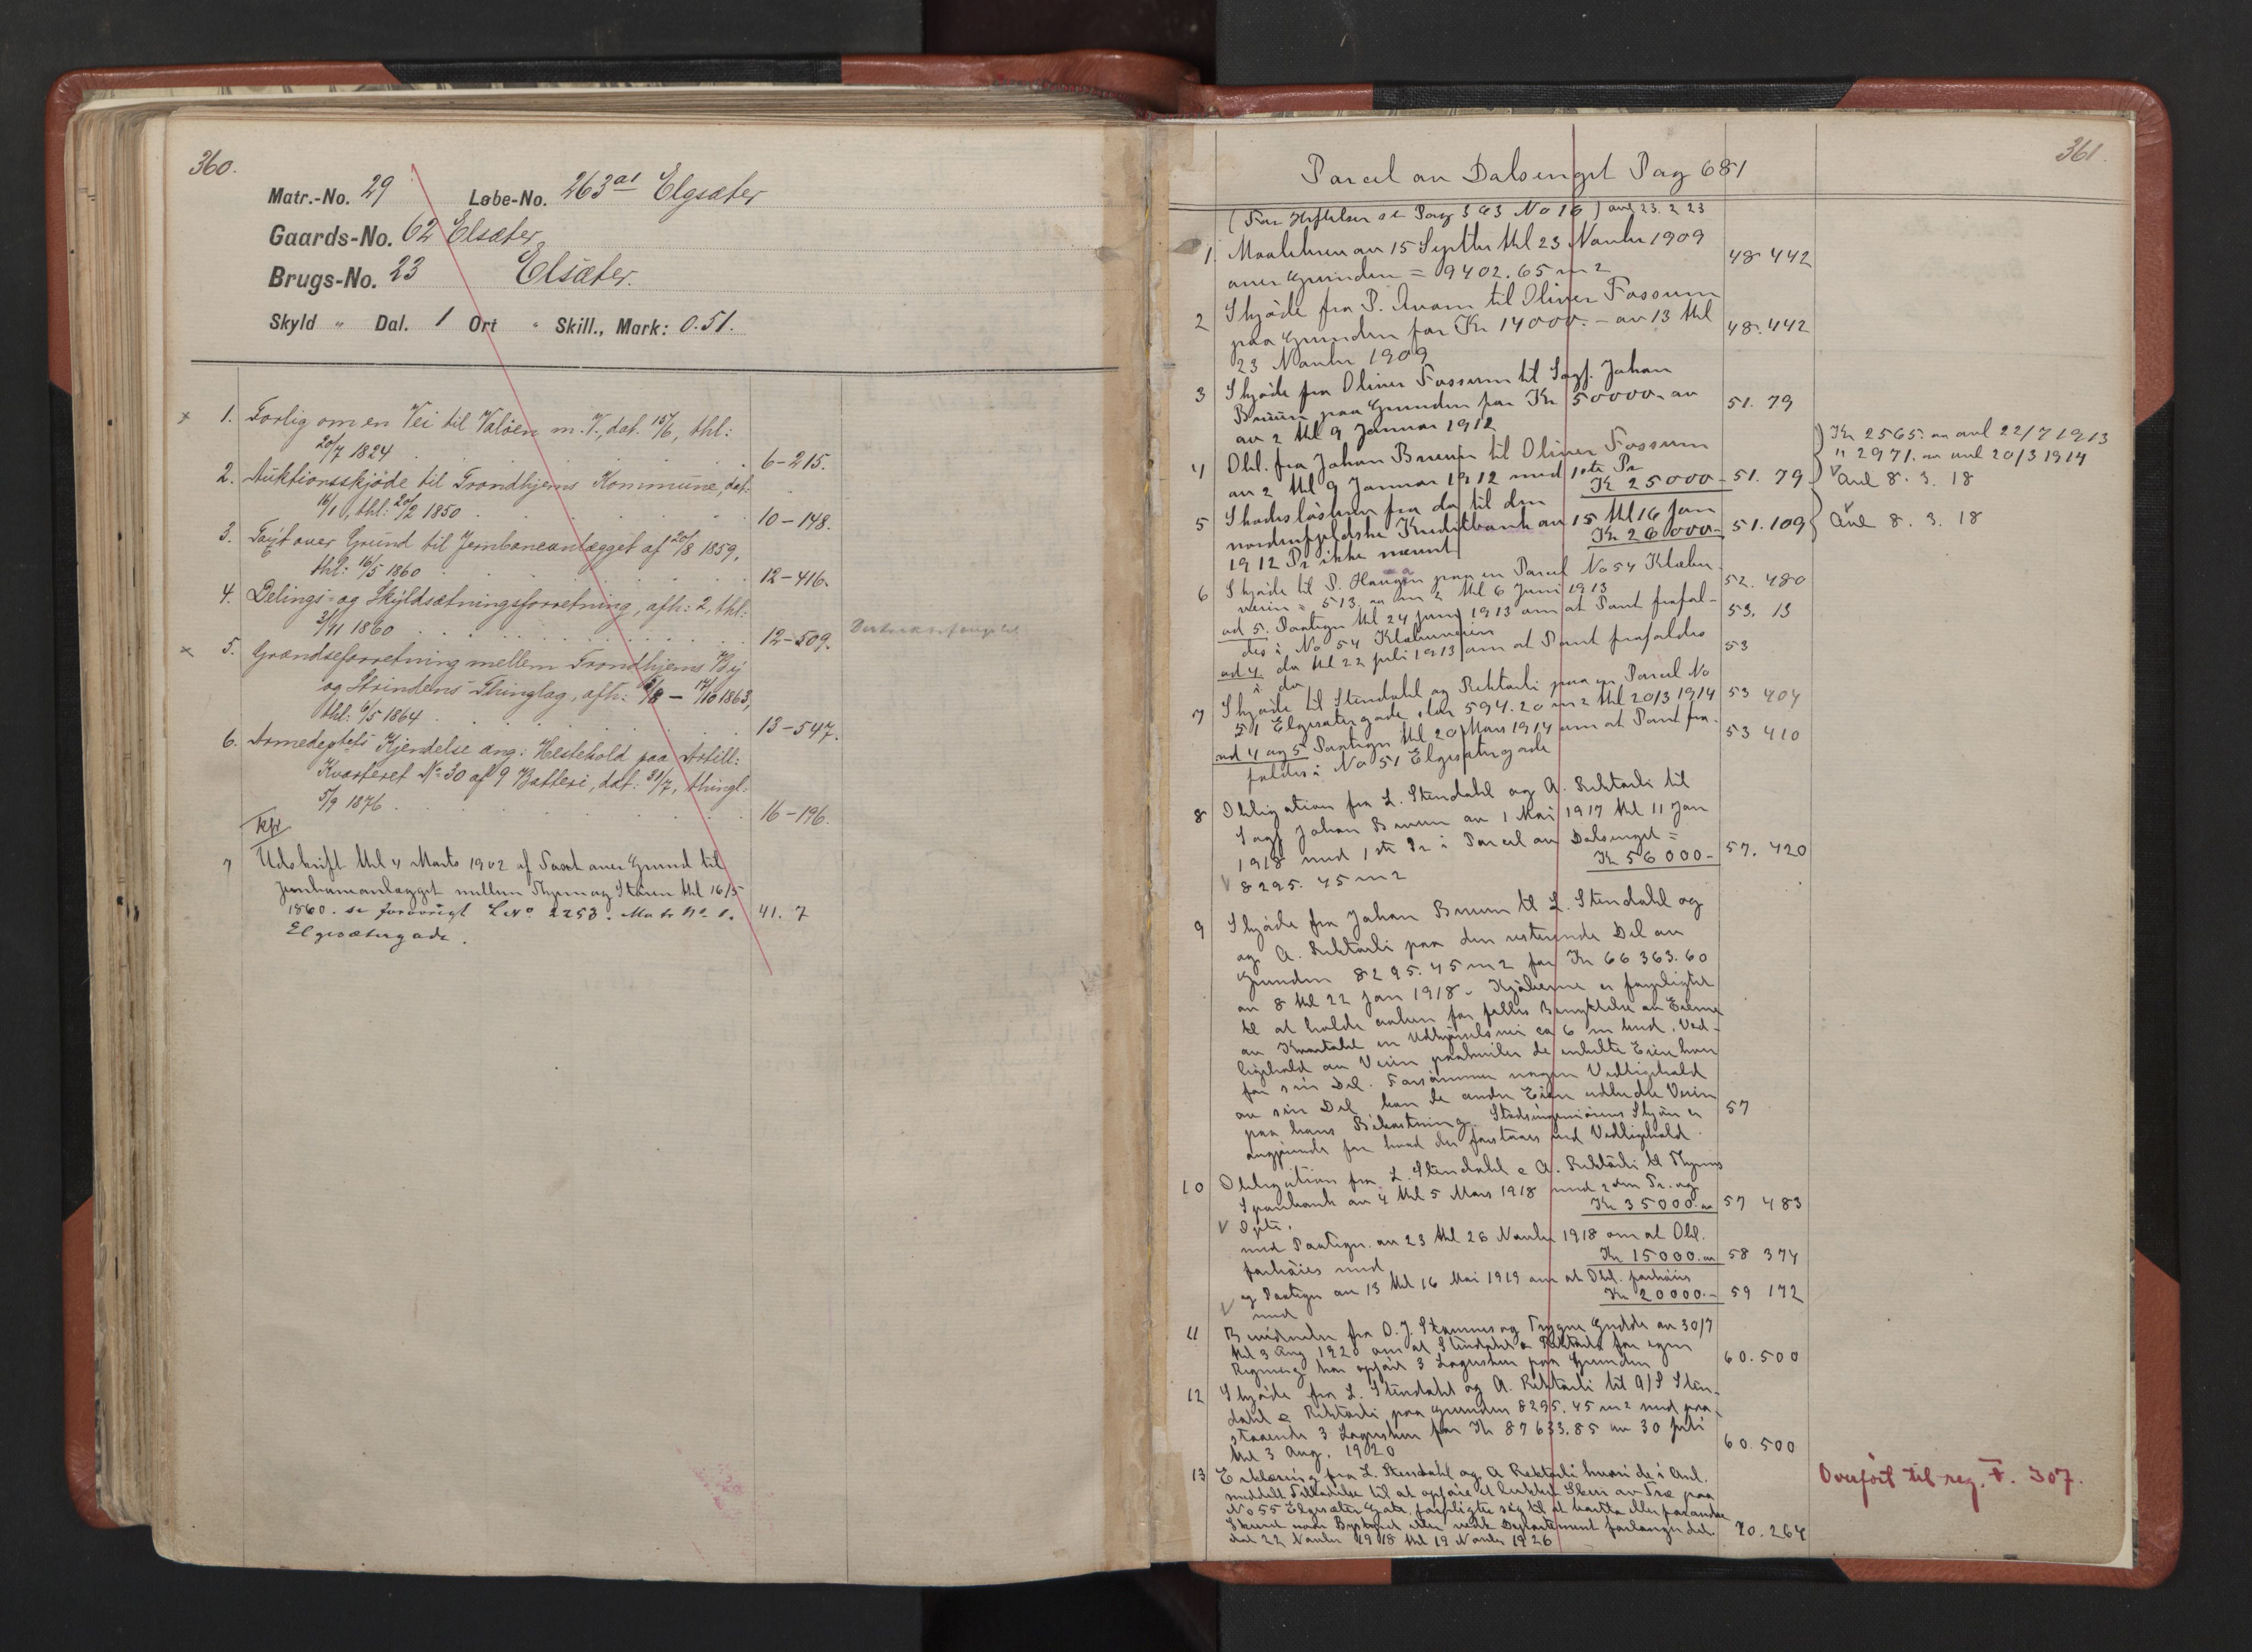 360.
Matr.-No. 29 Løbe-No. 263a1 Elgsæter
Gaards-No. 62 Elsæter
Brugs-No. 23 Elsæter.
Skyld " Dal. 1 Ort " Skill., Mark: 0.51.
x 1. Forlig om en Vei til Valöen m. V., dat. 15/6, thl:
20/7 1824 . . . 6-215.
2. Auktionsskjøde til Trondhjems Kommune, dat:
16/1, thl: 20/2 1850 . . . 10-148.
3. Taxt over Grund til Jernbaneanlægget af 20/8 1859,
thl: 16/5 1860 . . . 12-416.
4. Delings- og Skyldsætningsforretning, afh: 2, thl:
3/11 1860 . . . 12-509.
x 5. Grændseforretning mellem Trondhjems By
og Strindens Thinglag, afh: /8 - 17/10 1863,
thl: 6/5 1864 . . . 13-547.
6. Armedeptets Kjendelse ang: Hestehold paa Artill:
Kvarteret No 30 af 9 Batteri, dat: 31/7, thingl:
5/9 1876 . . . 16-196.
7 Udskrift thl 4 Marts 1902 af Taxt over Grund til
Jernbaneanlægget mellem Thjem og Støren thl 16/5
1860. se forøvrigt LNo 2253. Matr No 1. 41. 7
Elgesætergade.
361.
Parcel av Dalsenget Pag 681
(For Heftelser se Pag 363 No 16) avl 23. 2 23
1. Maalebrev av 15 Septbr thl 23 Novbr 1909
over Grunden = 9402.65 m2 48 442
2 Skjøde fra P. Avam til Oliver Fossum
paa Grunden for Kr 14000.- av 13 thl 48.442
23 Novbr 1909
3 Skjøde fra Oliver Fossum til Sagf. Johan
Bruun paa Grunden for Kr 50000.- av 51. 79
av 2 thl 9 Januar 1912
4 Obl. fra Johan Bruun til Oliver Fossum
av 2 thl 9 Januar 1912 med 1ste Pr
Kr 25000- 51. 79
Kr 2565. av avl 22/7 1913
" 2971. av avl 20/3 1914
avl 8. 3. 18
5 Skadesløsbrev fra do til den
nordenfjeldske Kreditbank av 15 thl 16 Jan
1912 Pr ikke nævnt Kr 26000- 51.109 avl 8. 3. 18
6 Skjøde til P. Haugen paa en Parcel No 54 Klæbu-
veien = 513 m2 thl 6 Juni 1913 52. 480
ad 5. Paategn thl 24 Juni 1913 om at Pant frafal- 53. 13
des i No 54 Klæbuveien
ad 4 do thl 22 juli 1913 om at Pant frafaldes 53
i do
7 Skjøde til Stendahl og Rektorli paa en Parcel No
51 Elgesætergade, stor 594.20 m2 thl 20/3 1914 53 404
ad 4 og 5 Paategn thl 20 Mars 1914 om at Pant fra- 53 410
faldes i No 51 Elgesætergade
8 Obligation fra L. Stendahl og A. Rektorli til
Sagf Johan Bruun av 1 Mai 1917 thl 11 Jan
1918 med 1ste Pr i Parcel av Dalsenget =
8295. 45 m2 Kr 56000- 57. 420
9 Skjøde fra Johan Bruun til L. Stendahl og
og A. Rektorli paa den resterende Del av
Grunden 8295.45 m2 for Kr 66363.60
av 8 thl 22 Jan 1918. Kjøberne er forpligtet
til at holde aaben for fælles Benyttelse av Eierne
av Kvartalet en Udkjørselsvei ca 6 m bred. Ved-
ligehold av Veien paahviler de enkelte Eiere hver
for sin Del. Forsømmer nogen Vedligehold
av sin Del kan de andre Eiere udbedre Veien
paa hans Bekostning. Stadsingeniørens Skjøn er 57
avgjørende for hvad der forstaaes ved Vedligehold.
10 Obligation fra L. Stendahl & A. Rektorli til Thjems
Sparebank av 4 thl 5 Mars 1918 med 2den Pr. og
Opr. Kr 35000.- 57 483
med Paategn. av 23 thl 26 Novbr 1918 om at Obl.
forhøies med Kr 15000. 58 374
og Paategn av 13 thl 16 Mai 1919 om at Obl. forhøies
med Kr 20000.- 59 172
11 Bevidnelse fra O. J. Stamnes og Trygve Gudde av 30/7
thl 3 Aug 1920 om at Stendahl & Rektorli for egen
Regning har opført 3 Lagerskur paa Grunden 60.500
12 Skjøde fra L. Stendahl og A. Rektorli til A/S Sten-
dahl & Rektorli paa Grunden 8295.45 m2 med paa-
staaende 3 Lagerskur for Kr 87633.85 av 30 juli
thl 3 Aug. 1920 60.500
13 Erklæring fra L. Stendahl og A Rektorli hvori de i Anl.
meddelt Tilladelse til at opføre et lukket Skur av Træ paa
No 55 Elgesæter Gate, forpligter sig til at borttа eller forandre
Skuret naar Bystyret eller vedk Departement forlanger det.
dat 22 Novbr 1918 thl 19 Novbr 1926 70.264
Overført til reg. I. 307.